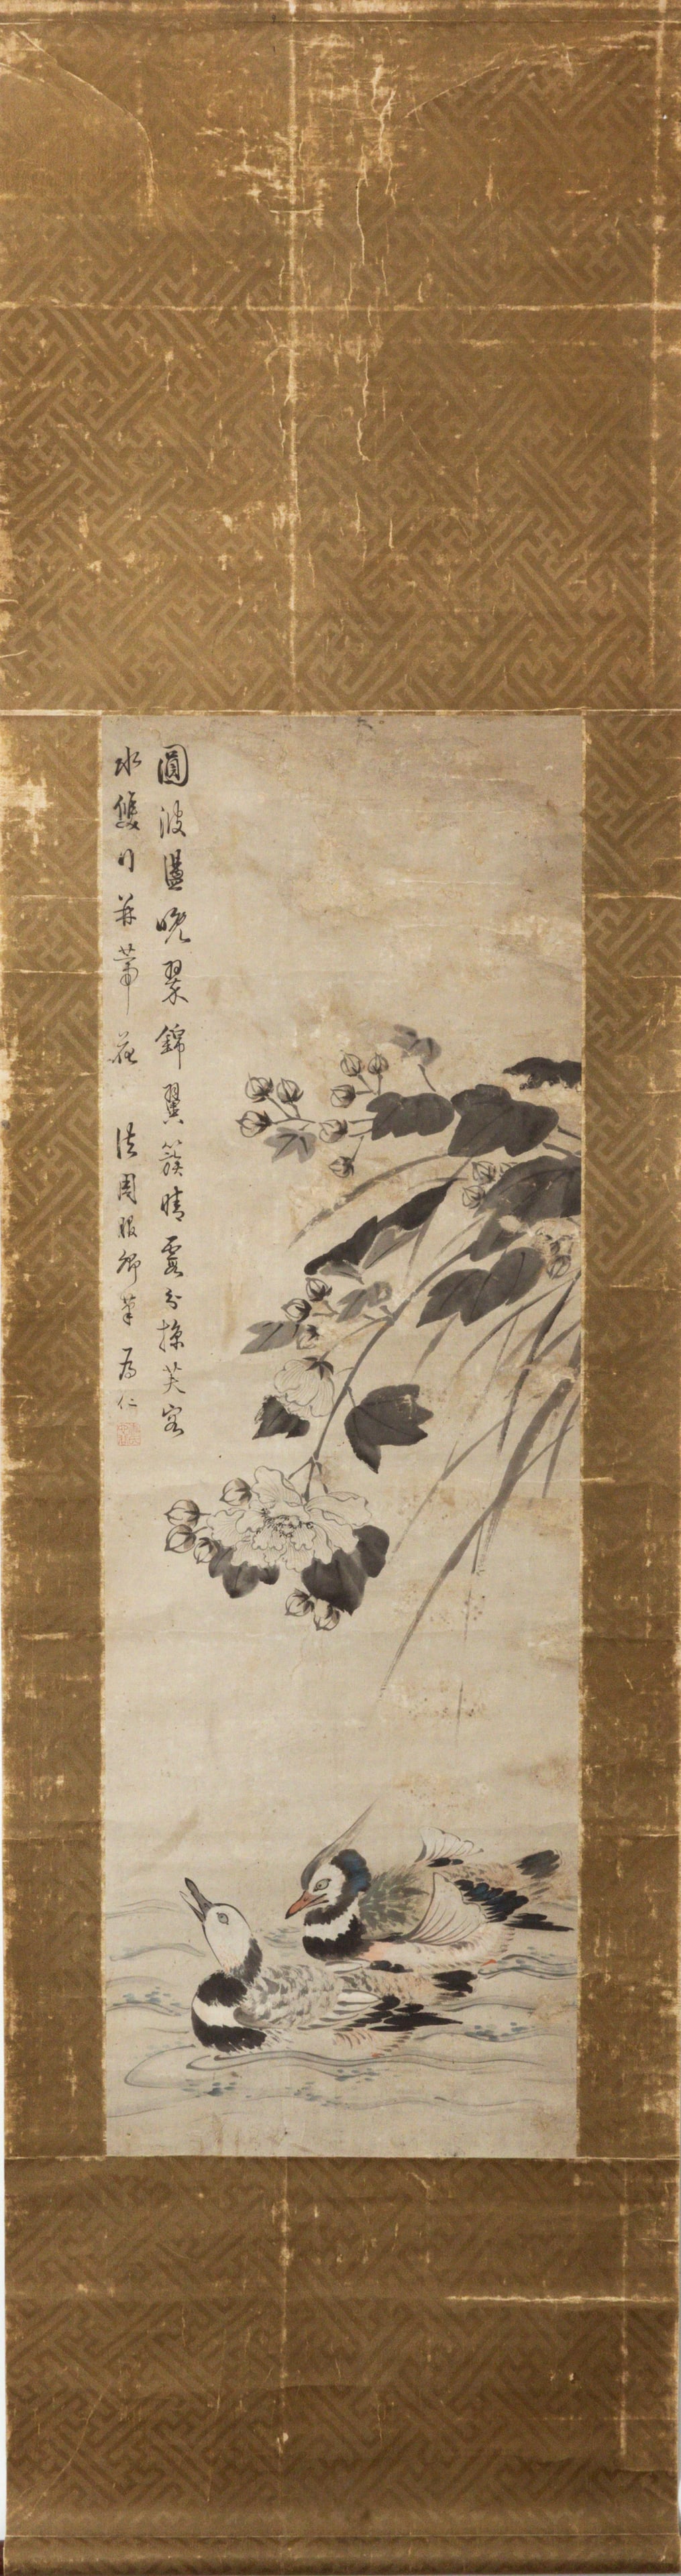 圓波溫晚翠錦翼簇晴霞分掠芙容
水雙可並蒂花 法周服卿筆 為仁